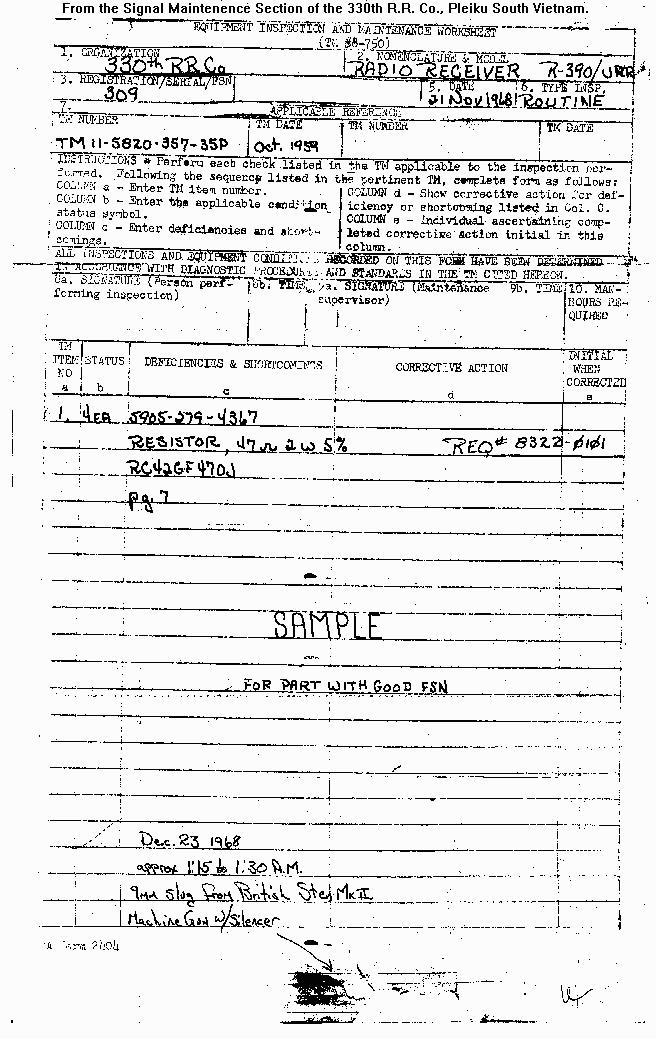 From the Signal Maintenence Section of the 330th R.R. Co., Pleiku South Vietnam.
EQUIPMENT INSPECTION AND MAINTENANCE WORKSHEET
(TM 38-750)
1. ORGANIZATION
330th RR Co
2. NOMENCLATURE & MODEL
RADIO RECEIVER R-390/URR
3. REGISTRATION/SERIAL/FSN
309
5. DATE
21 Nov 1968
6. TYPE INSP.
ROUTINE
7. APPLICABLE REFERENCE
TM NUMBER
TM 11-5820-357-35P
TM DATE
Oct. 1959
TM NUMBER
TM DATE
INSTRUCTIONS - Perform each check listed in the TM applicable to the inspection per-
formed. Following the sequence listed in the pertinent TM, complete form as follows:
COLUMN a - Enter TM item number.
COLUMN b - Enter the applicable condition
status symbol.
COLUMN c - Enter deficiencies and short-
comings.
COLUMN d - Show corrective action for def-
iciency or shortcoming listed in Col. C.
COLUMN e - Individual ascertaining comp-
leted corrective action initial in this
column.
ALL INSPECTIONS AND EQUIPMENT CONDITIONS RECORDED ON THIS FORM HAVE BEEN DETERMINED
IN ACCORDENCE WITH DIAGNOSTIC PROCEDURES AND STANDARDS IN THE TM CITED HEREON.
8a. SIGNATURE (Person perf-
orming inspection)
8b. TIME
9a. SIGNATURE (Maintenance
supervisor)
9b. TIME
10. MAN-
HOURS RE-
QUIRED
TM
ITEM
NO
a
STATUS
b
DEFICIENCIES & SHORTCOMINGS
c
CORRECTIVE ACTION
d
INITIAL
WHEN
CORRECTED
e
1. 4EA 5905-279-4367
RESISTOR, 47 Ω 2 W 5% REQ# 8322-0101
RC42GF470J
pg. 7
SAMPLE
FOR PART WITH GOOD FSN
Dec. 23 1968
approx 1:15 to 1:30 A.M.
9mm slug from British Sten Mk II
Machine Gun w/Silencer
Form 2404